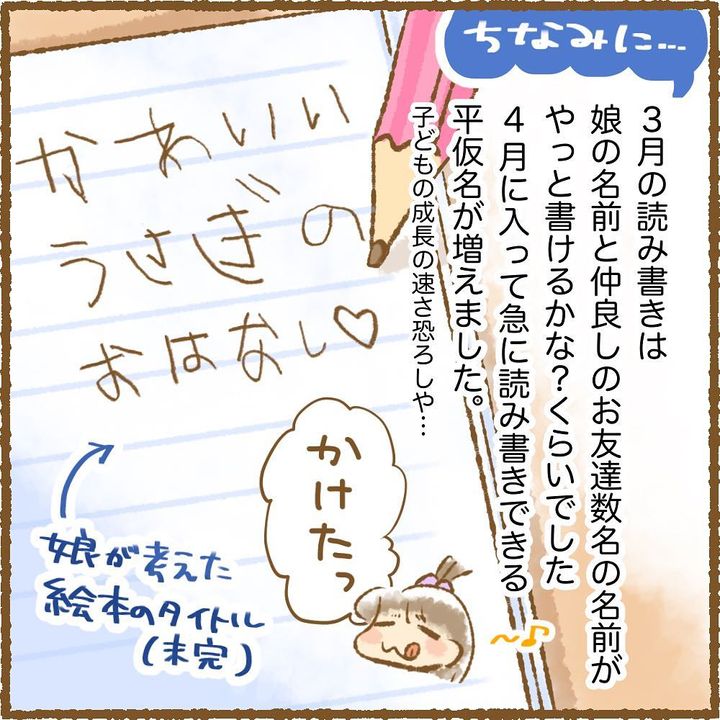 ちなみに…
3月の読み書きは
娘の名前と仲良しのお友達数名の名前が
やっと書けるかな?くらいでした
4月に入って急に読み書きできる
平仮名が増えました。
子どもの成長の速さ恐ろしや…
かわいい
うさぎの
おはなし♡
かけたっ
娘が考えた
絵本のタイトル
(未完)
~♪